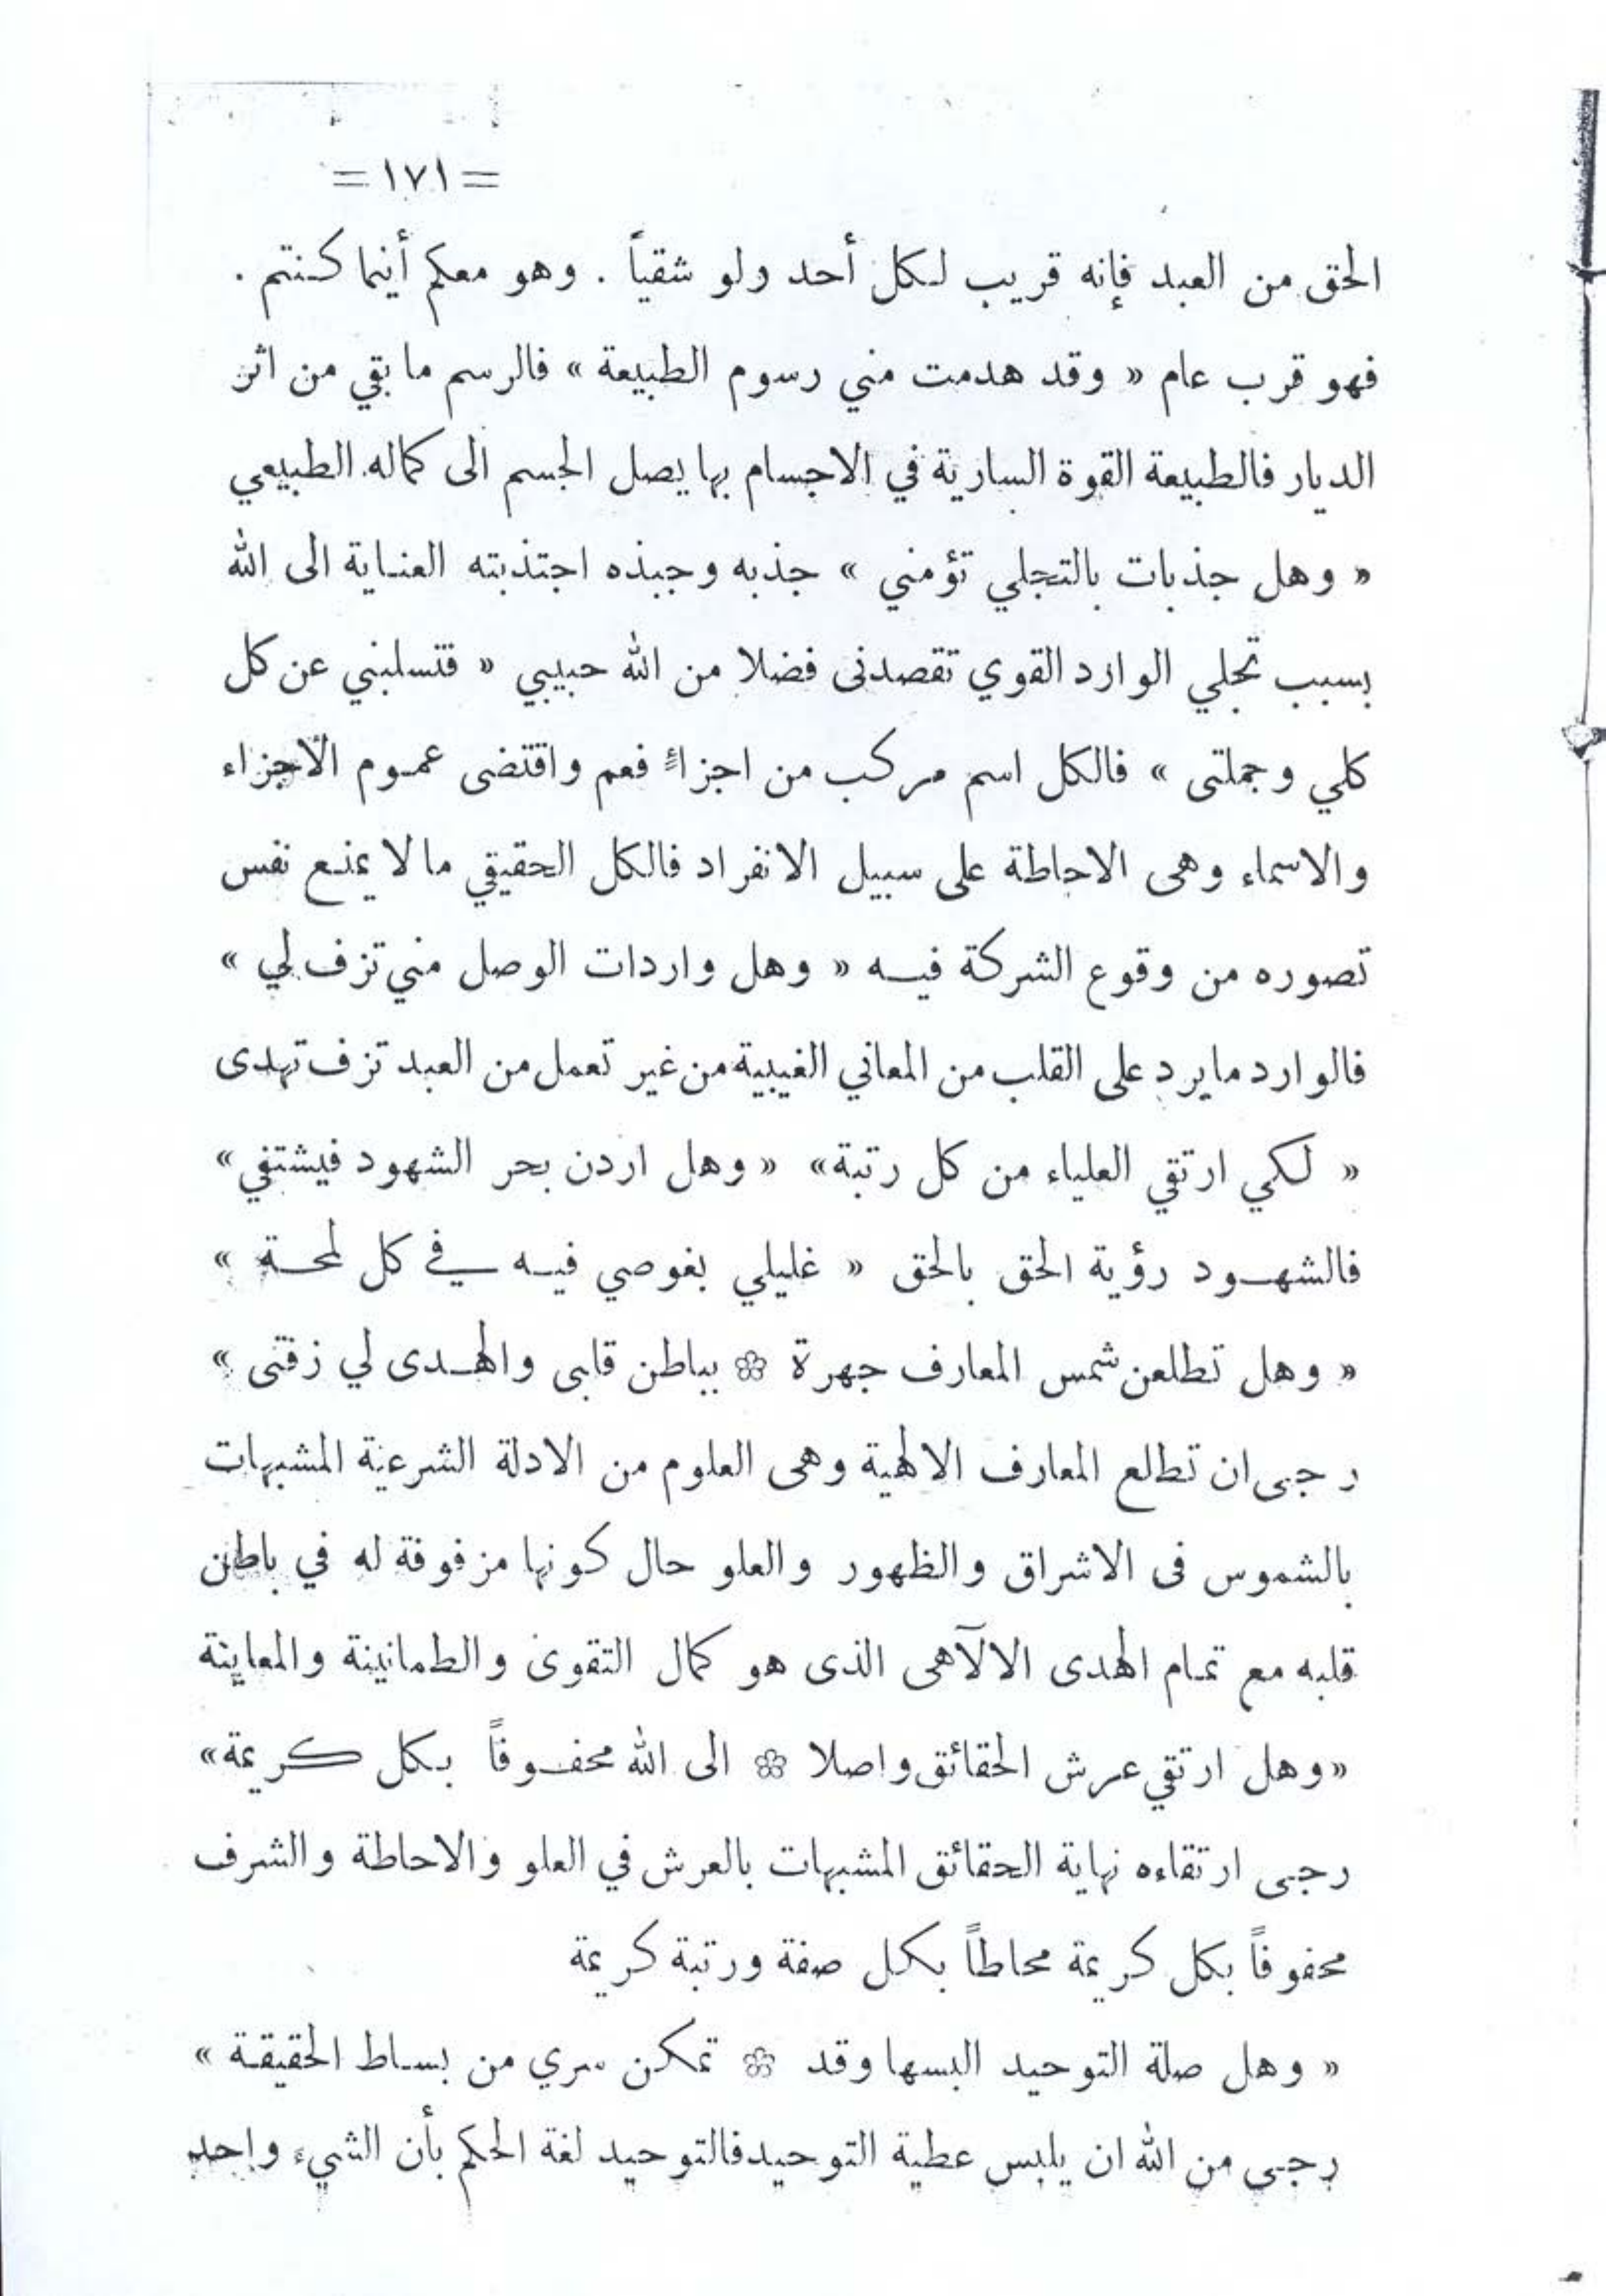 = ١٧١ =
الحق من العبد فإنه قريب لكل أحد ولو شقياً . وهو معكم أينما كنتم .
فهو قرب عام « وقد هدمت مني رسوم الطبيعة » فالرسم ما بقي من اثر
الديار فالطبيعة القوة السارية في الاجسام بها يصل الجسم الى كماله الطبيعي
« وهل جذبات بالتجلي تؤمني » جذبه وجبذه اجتذبته العناية الى الله
بسبب تجلي الوارد القوي تقصدنى فضلا من الله حبيبي « فتسلبني عن كل
كلي وجملتى » فالكل اسم مركب من اجزاءً فعم واقتضى عموم الاجزاء
والاسماء وهى الاحاطة على سبيل الانفراد فالكل الحقيقي ما لا يمنع نفس
تصوره من وقوع الشركة فيه « وهل واردات الوصل مني تزف لي »
فالوارد ما يرد على القلب من المعاني الغيبية من غير تعمل من العبد تزف تهدى
« لكي ارتقي العلياء من كل رتبة» « وهل اردن بحر الشهود فيشتفي»
فالشهود رؤية الحق بالحق « غليلي بغوصي فيه في كل لمحة »
« وهل تطلعن شمس المعارف جهرة ۞ بباطن قابى والهدى لي زفتى »
رجى ان تطالع المعارف الالهية وهى العلوم من الادلة الشرعية المشبهات
بالشموس فى الاشراق والظهور والعلو حال كونها مزفوفة له في باطن
قلبه مع تمام الهدى الالآهى الذى هو كمال التقوى والطمانينة والمعاينة
«وهل ارتقي عرش الحقائق واصلا ۞ الى الله محفوفاً بكل كريمة»
رجى ارتقاءه نهاية الحقائق المشبهات بالعرش في العلو والاحاطة والشرف
محفوفاً بكل كريمة محاطاً بكل صفة ورتبة كريمة
« وهل صلة التوحيد البسها وقد ۞ تمكن سري من بساط الحقيقة »
رجى من الله ان يلبس عطية التوحيد فالتوحيد لغة الحكم بأن الشيء واحد